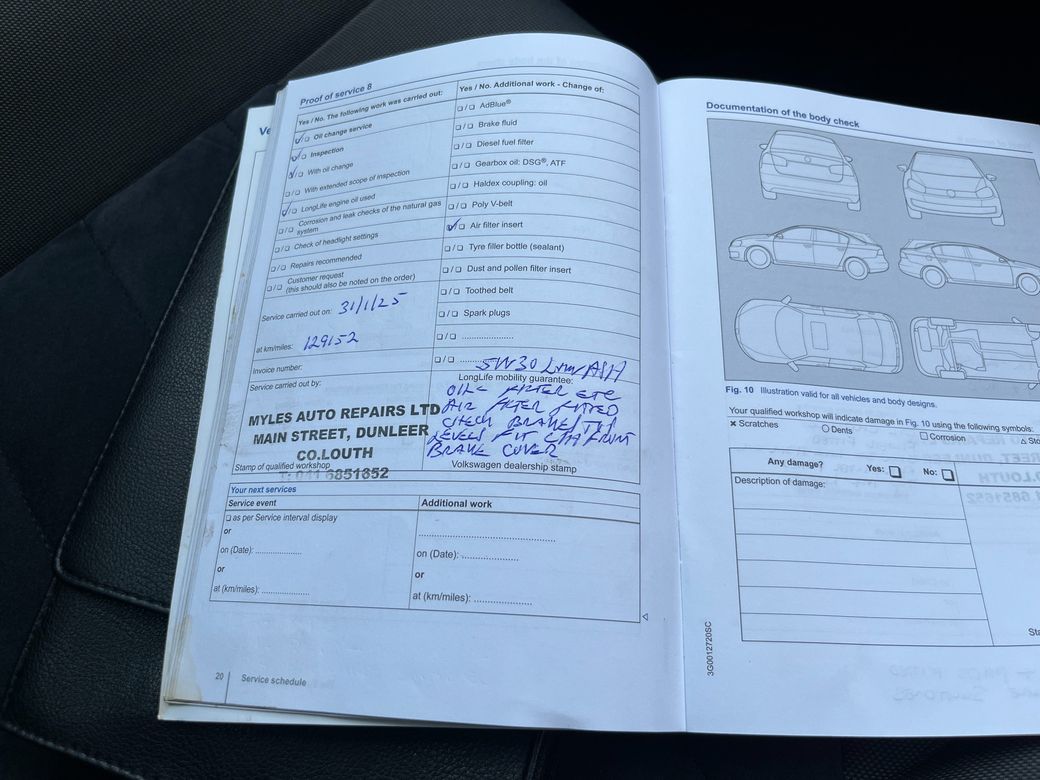 Ve
Proof of service 8
Yes / No. The following work was carried out:
❑ Oil change service
❑ Inspection
❑ With oil change
❑/❑ With extended scope of inspection
❑ LongLife engine oil used
❑/❑ Corrosion and leak checks of the natural gas
system
❑/❑ Check of headlight settings
❑/❑ Repairs recommended
❑/❑ Customer request
(this should also be noted on the order)
Service carried out on: 31/1/25
at km/miles: 129152
Invoice number:
Service carried out by:
MYLES AUTO REPAIRS LTD
MAIN STREET, DUNLEER
CO.LOUTH
Stamp of qualified workshop
T: 041 6851652
Yes / No. Additional work - Change of:
❑/❑ AdBlue®
❑/❑ Brake fluid
❑/❑ Diesel fuel filter
❑/❑ Gearbox oil: DSG®, ATF
❑/❑ Haldex coupling: oil
❑/❑ Poly V-belt
❑ Air filter insert
❑/❑ Tyre filler bottle (sealant)
❑/❑ Dust and pollen filter insert
❑/❑ Toothed belt
❑/❑ Spark plugs
❑/❑ ....................
❑/❑ ..........
5W30 Low ASH
LongLife mobility guarantee:
OIL FILTER ETC
AIR FILTER FITTED
CHECK BRAKES
LEVELS FIT FRONT
BRAKE COVER
Volkswagen dealership stamp
Your next services
Service event
❑ as per Service interval display
or
on (Date): ...............
or
at (km/miles): ...............
Additional work
............................................
on (Date): ..................
or
at (km/miles): ..................
20 Service schedule
Documentation of the body check
Fig. 10 Illustration valid for all vehicles and body designs.
Your qualified workshop will indicate damage in Fig. 10 using the following symbols:
× Scratches
○ Dents
□ Corrosion
△ Sto
Any damage? Yes: ❑ No: ❑
Description of damage:
Sta
3G0012720SC